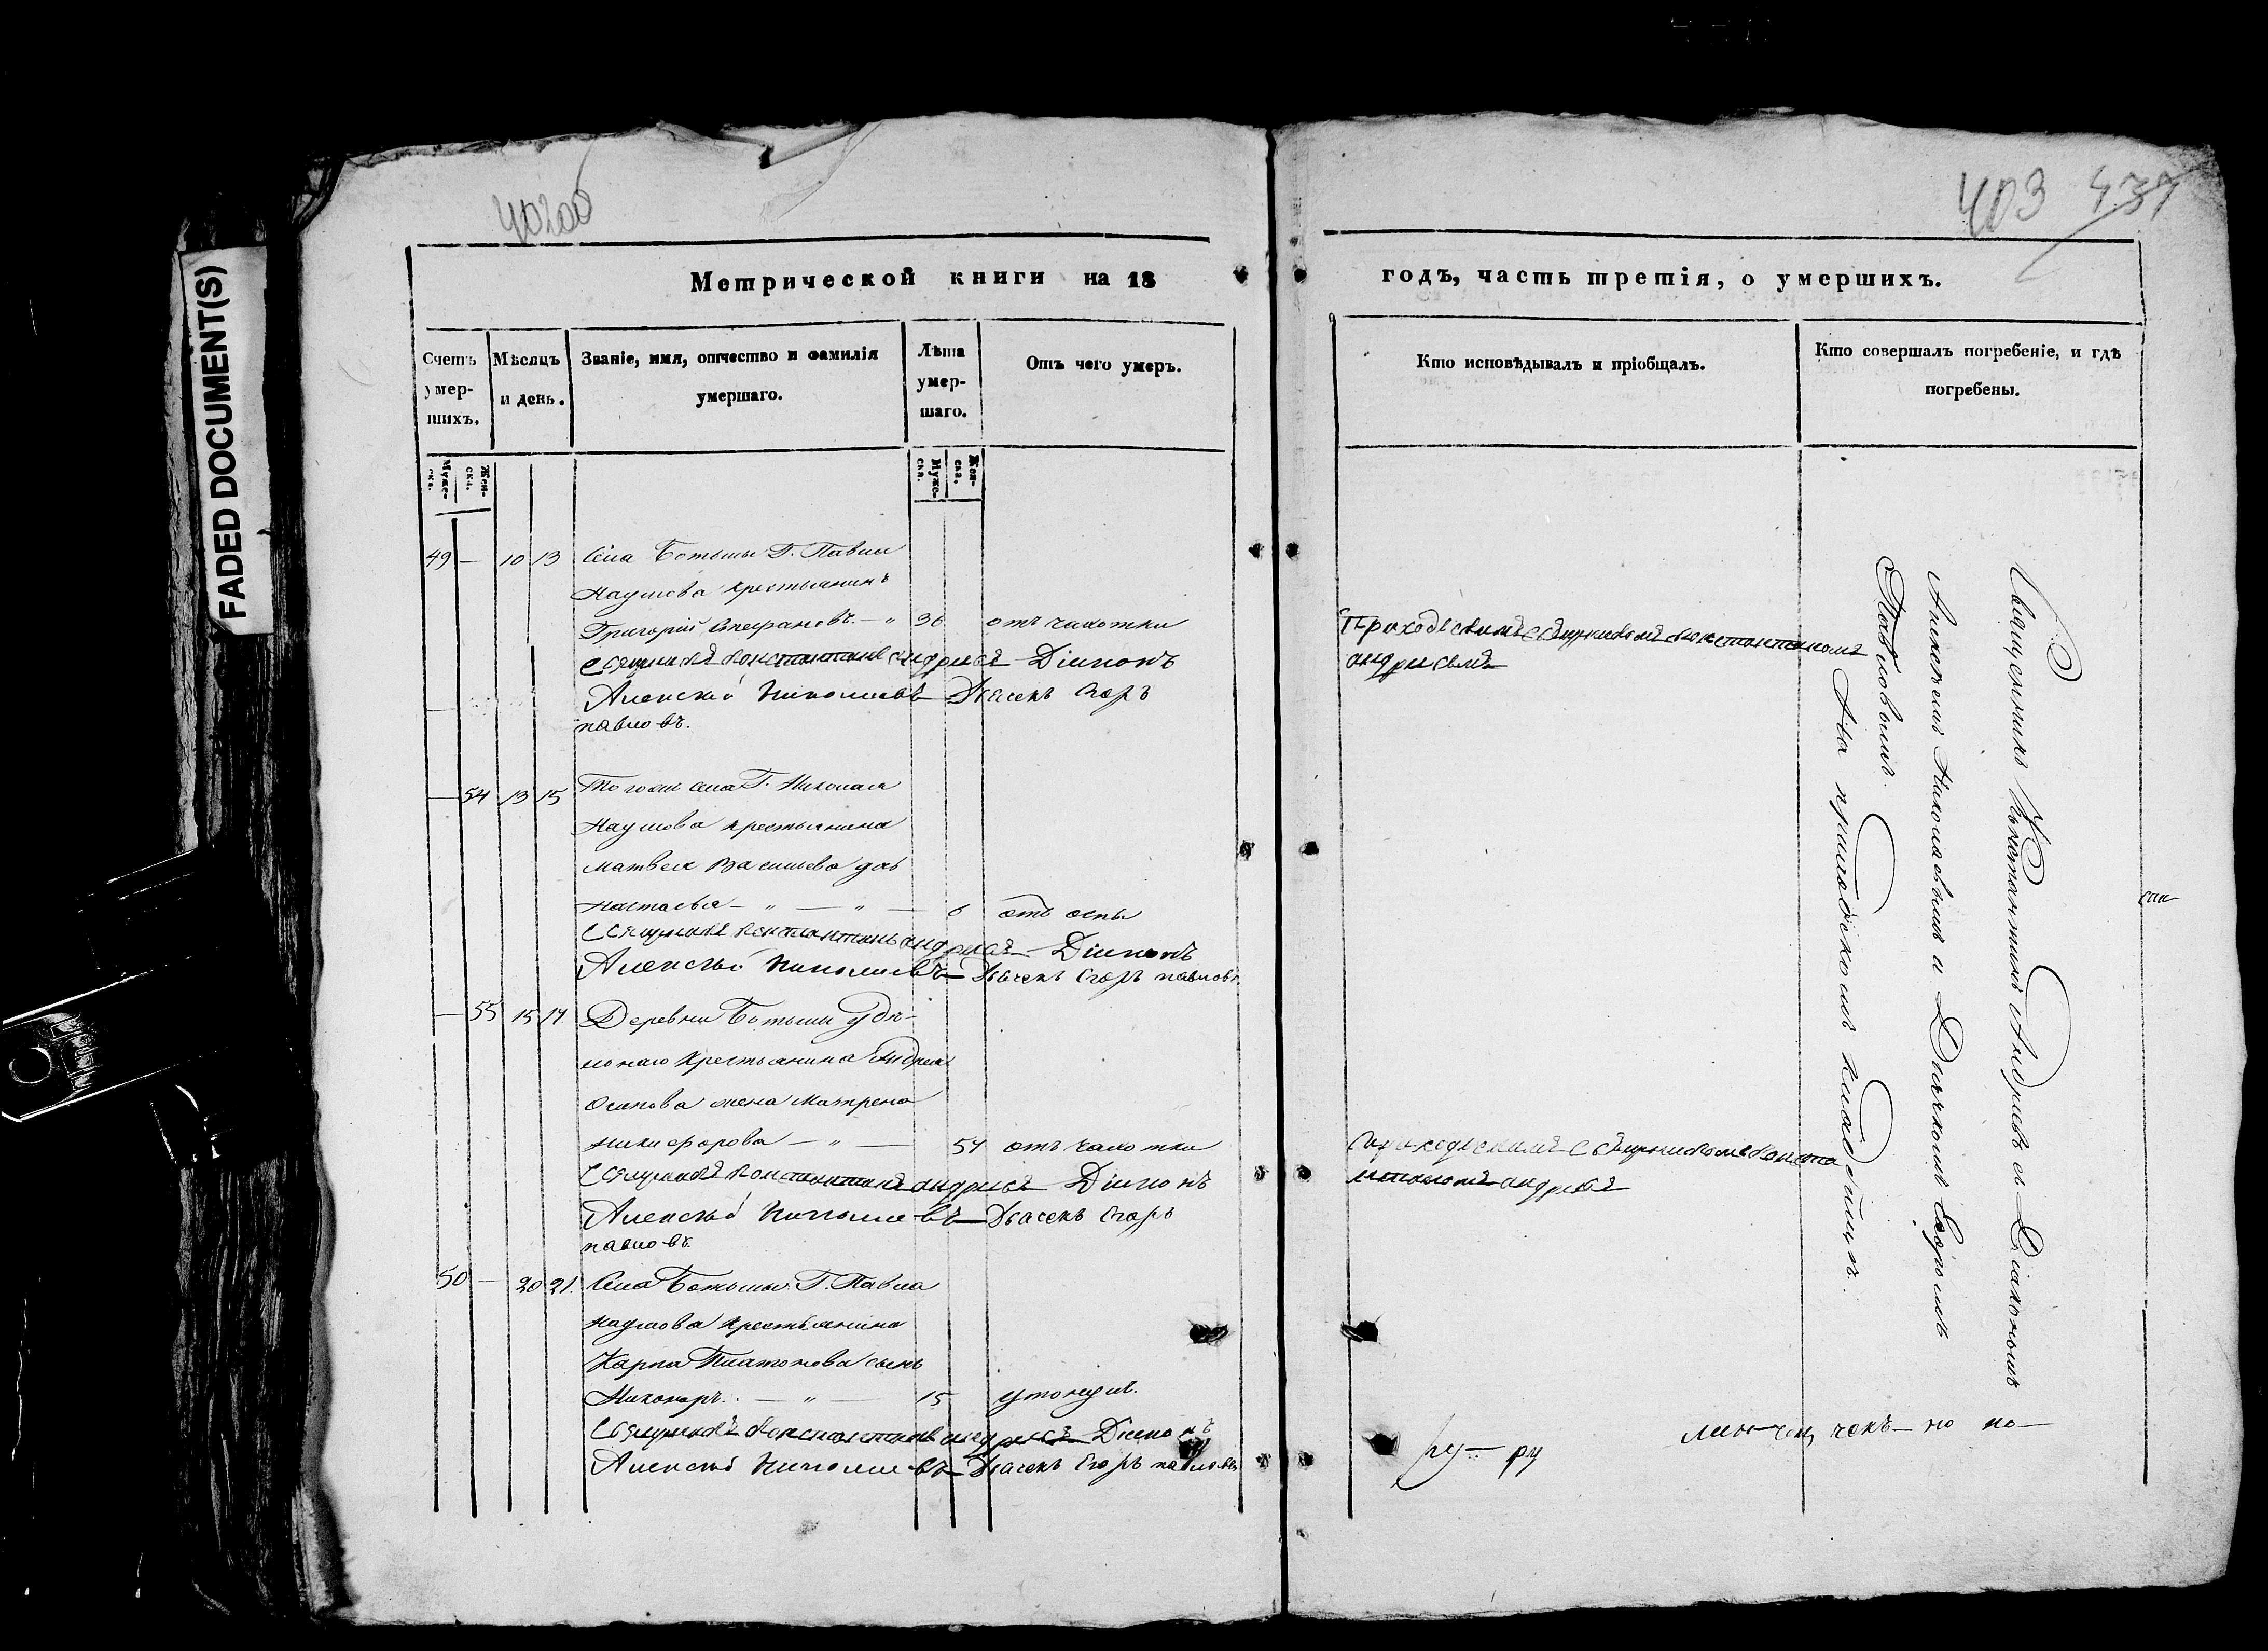 FADED DOCUMENT(S)
403 437
Метрической книги на 18 годъ, часть третія, о умершихъ.
Счетъ умер-шихъ.
Мѣсяцъ и день.
Званіе, имя, отчество и фамилія умершаго.
Лѣта умер-шаго.
Отъ чего умеръ.
Кто исповѣдывалъ и пріобщалъ.
Кто совершалъ погребеніе, и гдѣ погребены.
Муже-ска. Жен-ска. Муже-ска. Жен-ска.
49 — 10 13 Села Г. Павла
Наумова крестьянинъ
Григорій Стефановъ — " 36 отъ чахотки
Священникъ Константинъ Андреевъ Діаконъ
Алексѣй Николаевъ Дьячекъ Егоръ
павловъ.
Приходскимъ Священникомъ Константиномъ
андреевымъ
— 54 13 15 Того же села Г. Николая
Наумова крестьянина
Матвея Васильева дчь
Настасья — " — " — 6 отъ оспы
Священникъ Константинъ андреевъ Діаконъ
Алексѣй Николаевъ Дьячекъ Егоръ павловъ
— 55 15 17 Деревни Удѣ-
льнаго крестьянина Андрея
Осипова жена Матрена
Никифорова — " — 57 отъ чахотки
Священникъ Константинъ андреевъ Діаконъ
Алексѣй Николаевъ Дьячекъ Егоръ
павловъ.
приходскимъ Священникомъ Конста
нтиномъ андреевы
50 — 20 21. Села Г. Павла
Наумова крестьянина
Карпа Платонова сынъ
Никаноръ. — " — 15 утонулъ.
Священникъ Константинъ андреевъ Діаконъ
Алексѣй Николаевъ Дьячекъ Егоръ павловъ
Священникъ Константинъ Андреевъ съ Діакономъ
Алексѣемъ Николаевымъ и Дьячкомъ Егоромъ
Павловымъ.
На приходскомъ кладбищѣ.
ру — ру
чекъ — но по —